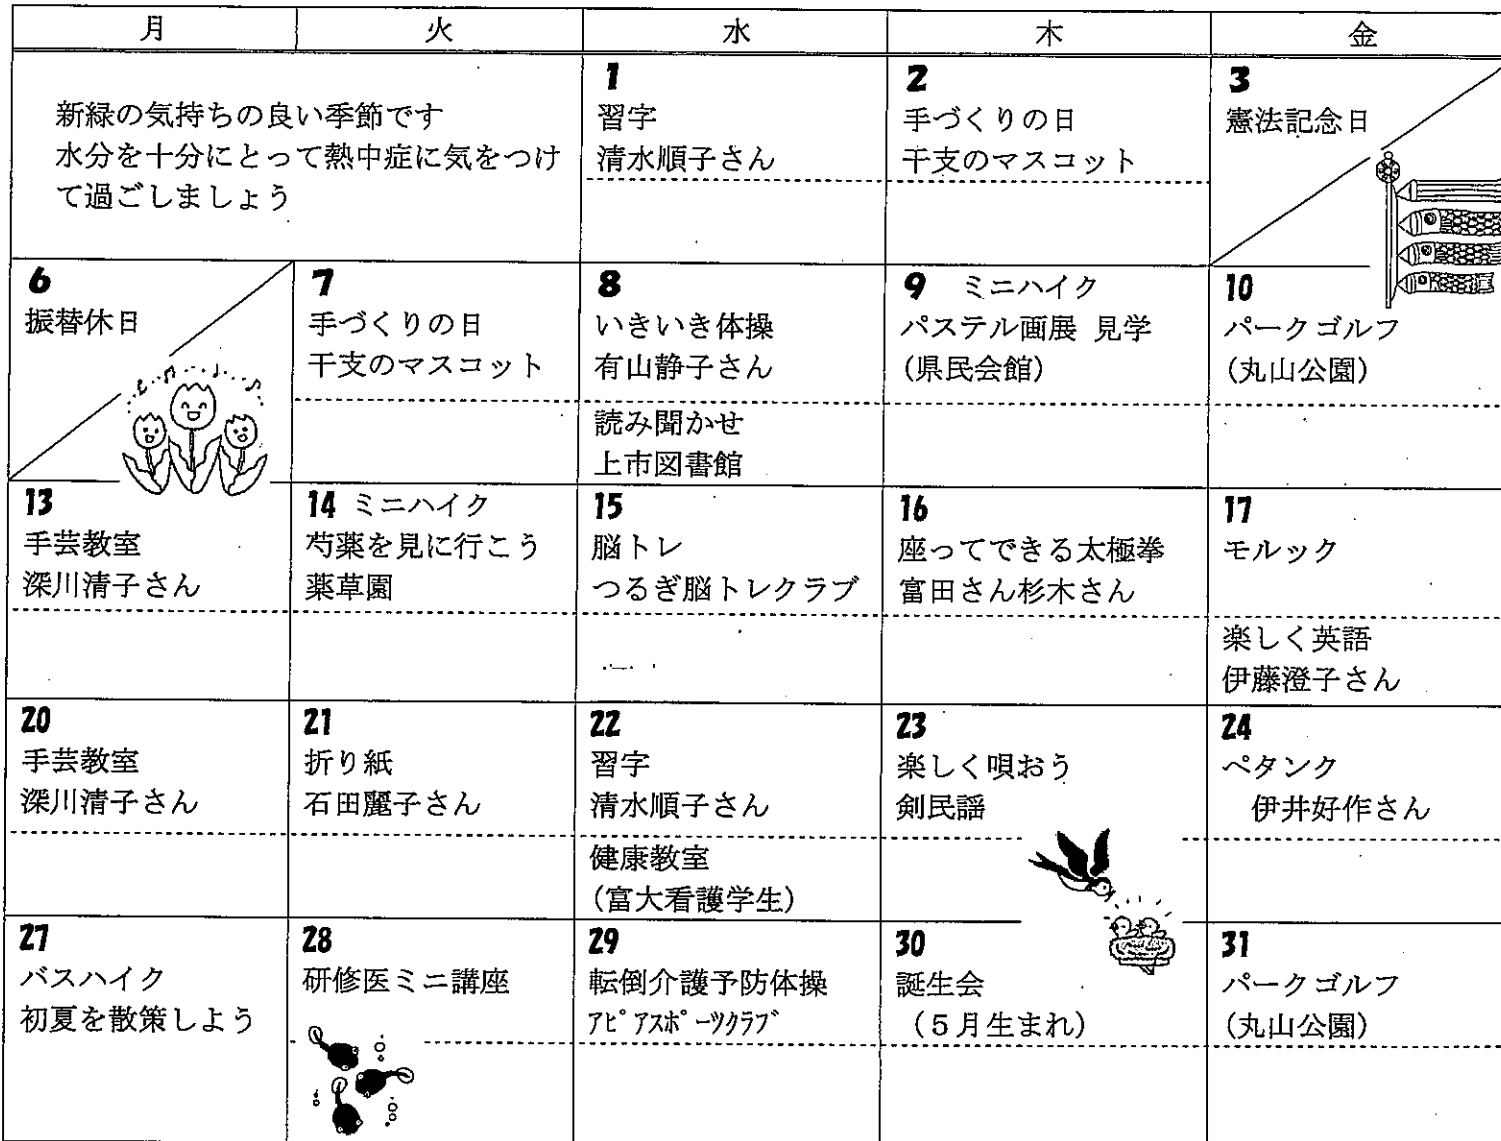 月
火
水
木
金
新緑の気持ちの良い季節です
水分を十分にとって熱中症に気をつけ
て過ごしましょう
1
習字
清水順子さん
2
手づくりの日
干支のマスコット
3
憲法記念日
6
振替休日
7
手づくりの日
干支のマスコット
8
いきいき体操
有山静子さん
読み聞かせ
上市図書館
9 ミニハイク
パステル画展 見学
(県民会館)
10
パークゴルフ
(丸山公園)
13
手芸教室
深川清子さん
14 ミニハイク
芍薬を見に行こう
薬草園
15
脳トレ
つるぎ脳トレクラブ
16
座ってできる太極拳
富田さん杉木さん
17
モルック
楽しく英語
伊藤澄子さん
20
手芸教室
深川清子さん
21
折り紙
石田麗子さん
22
習字
清水順子さん
健康教室
(富大看護学生)
23
楽しく唄おう
剣民謡
24
ペタンク
伊井好作さん
27
バスハイク
初夏を散策しよう
28
研修医ミニ講座
29
転倒介護予防体操
ｱﾋﾟｱｽﾎﾟｰﾂｸﾗﾌﾞ
30
誕生会
（５月生まれ）
31
パークゴルフ
(丸山公園)